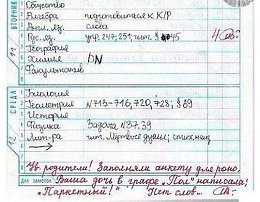 ВТОРНИК
Общество
Алгебра подготовиться к К/Р
Англ. яз. слова
Рус. яз. упр. 247, 251, чит. § 45
География
Химия
Факультатив
СРЕДА
Биология
Геометрия №713-716, 720, 728; § 89
История
Физика Задача №37, 39
Лит-ра чит. Мёртвые души; стих. наиз.
Ув. родители! Заполняли анкету для роно,
Ваша дочь в графе „Пол" написала:
„Паркетный!" Нет слов...